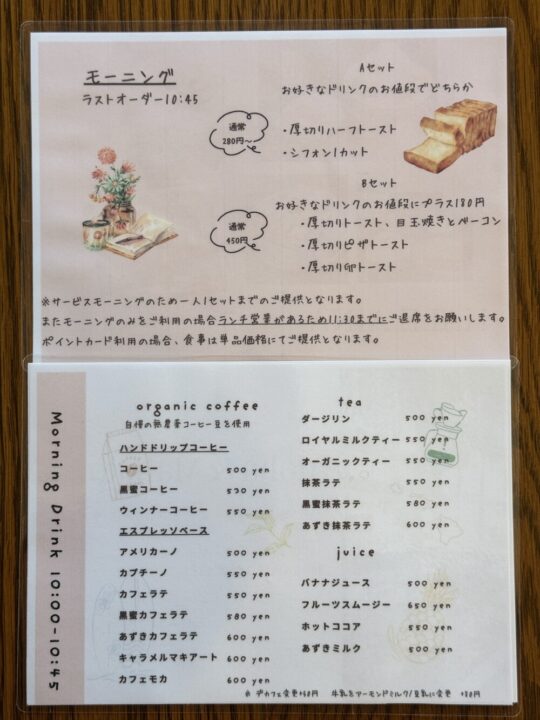 モーニング
ラストオーダー10:45
Aセット
お好きなドリンクのお値段でどちらか
通常
280円〜
・厚切りハーフトースト
・シフォン1カット
Bセット
お好きなドリンクのお値段にプラス180円
通常
450円
・厚切りトースト、目玉焼きとベーコン
・厚切りピザトースト
・厚切り卵トースト
※サービスモーニングのため一人1セットまでのご提供となります。
またモーニングのみをご利用の場合ランチ営業があるため11:30までにご退席をお願いします。
ポイントカード利用の場合、食事は単品価格にてご提供となります。
Morning Drink 10:00-10:45
organic coffee
自慢の無農薬コーヒー豆を使用
ハンドドリップコーヒー
コーヒー 500 yen
黒蜜コーヒー 530 yen
ウィンナーコーヒー 550 yen
エスプレッソベース
アメリカーノ 500 yen
カプチーノ 550 yen
カフェラテ 550 yen
黒蜜カフェラテ 580 yen
あずきカフェラテ 600 yen
キャラメルマキアート 600 yen
カフェモカ 600 yen
tea
ダージリン 500 yen
ロイヤルミルクティー 550 yen
オーガニックティー 550 yen
抹茶ラテ 550 yen
黒蜜抹茶ラテ 580 yen
あずき抹茶ラテ 600 yen
juice
バナナジュース 500 yen
フルーツスムージー 650 yen
ホットココア 550 yen
あずきミルク 500 yen
※ デカフェ変更+50円 牛乳をアーモンドミルク/豆乳に変更